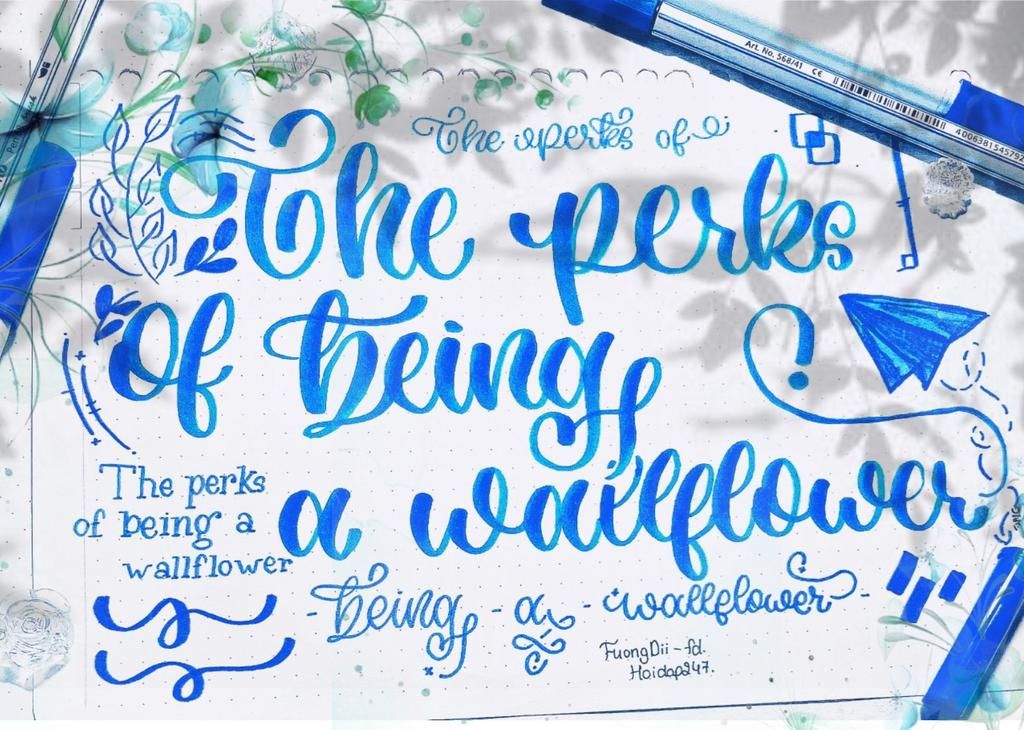 The perks of
The perks
of being
a wallflower
The perks
of being a
wallflower
- being - a - wallflower -
TuongDii - fd.
Hoidap247.
Art. No. 568/41 CE